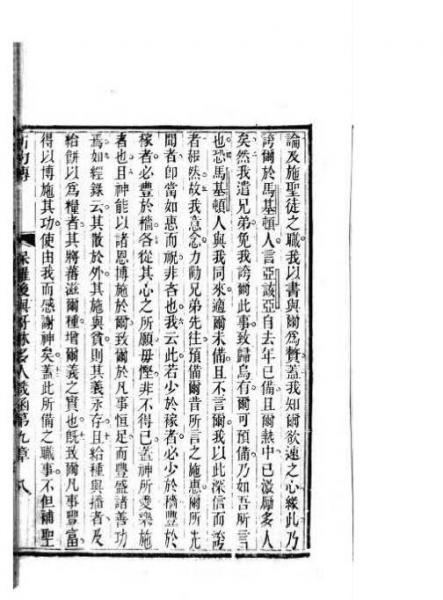 論及施聖徒之職我以書與爾爲贅蓋我知爾欲速之心緣此乃
誇爾於馬基頓人言亞該亞自去年已備且爾熱中已激勵多人
矣然我遣兄弟免我誇爾此事致歸烏有爾可預備乃如吾所言
也恐馬基頓人與我同來適爾未備且不言爾我以此深信而誇
者赧然故我意念力勸兄弟先往預備爾昔所言之施惠爾所先
聞者卽當如惠而視非吝也我云此若少於稼者必少於穡豐於
稼者必豐於穡各從其心之所願毋慳非不得已蓋神所愛樂施
者也且神能以諸恩博施於爾致爾於凡事恒足而豐盛諸善功
焉如經錄云其散於外其施與貧則其義永存且給種與播者及
給餅以爲糧者其將蕃滋爾種增爾義之實也旣致爾凡事豐富
得以博施其功使由我而感謝神矣蓋此所備之職事不但補聖
保羅後與哥林多人戩函第九章 八